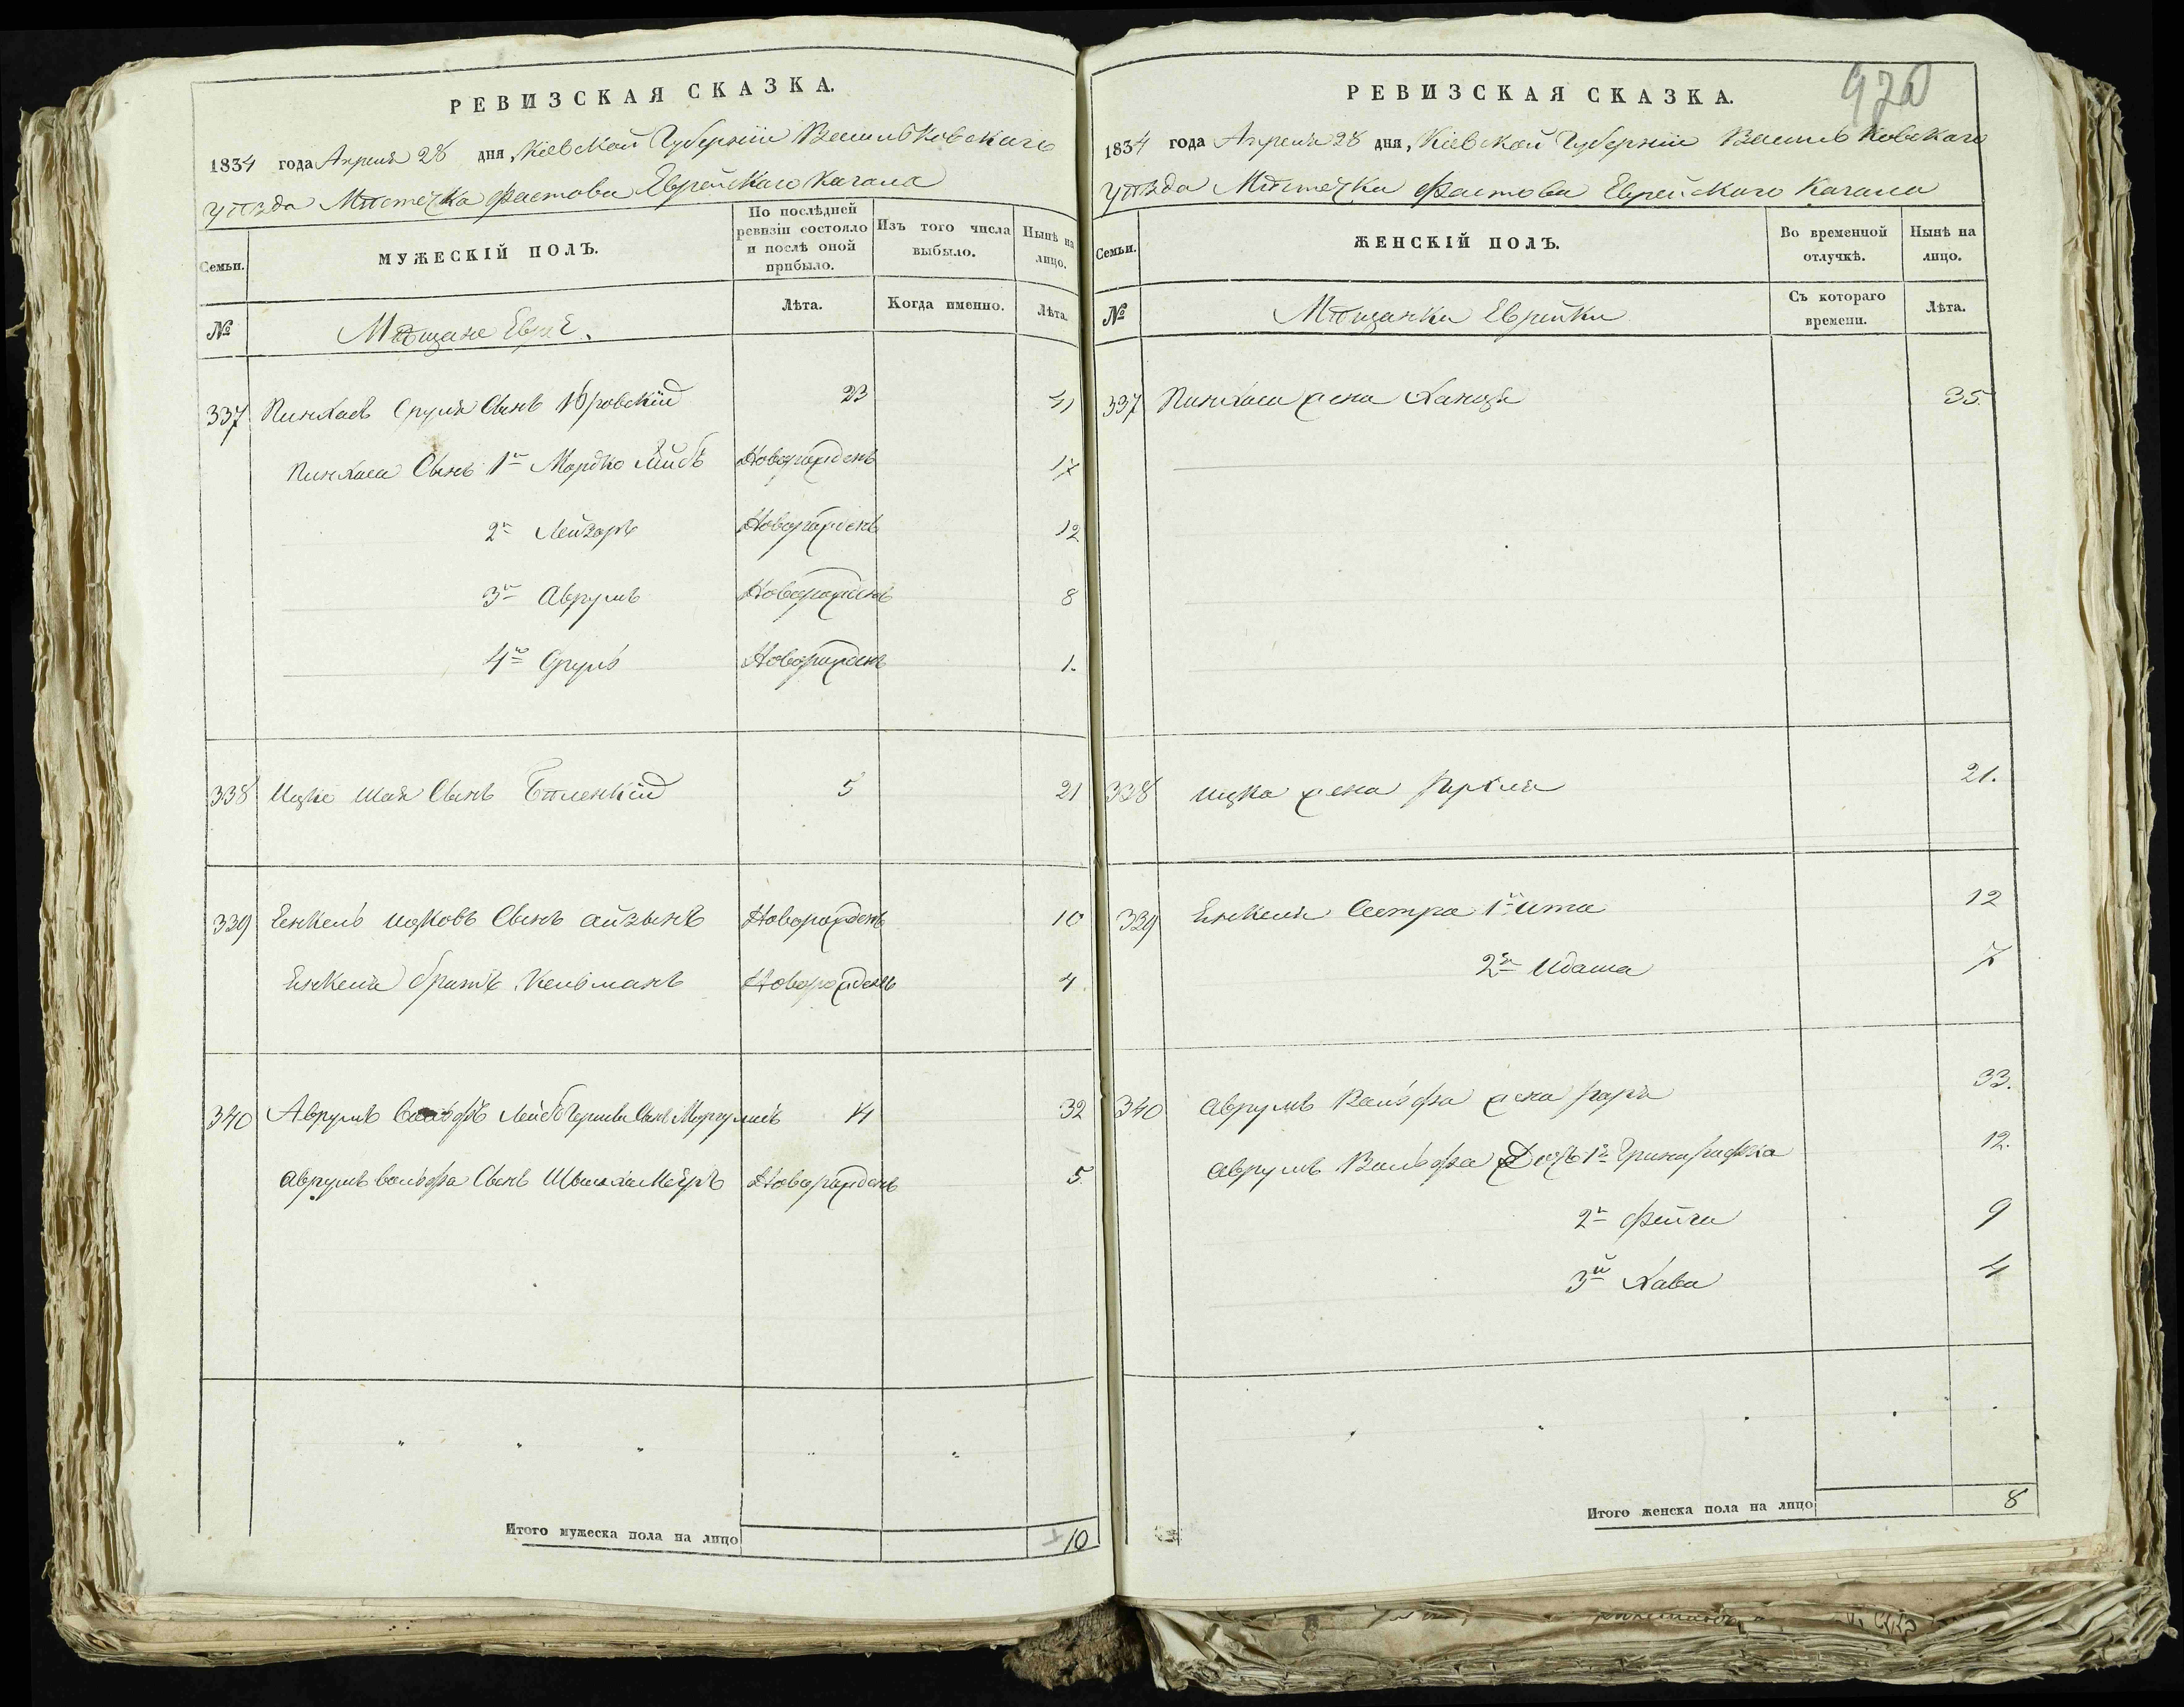 РЕВИЗСКАЯ СКАЗКА.
1834 года Апреля 28 дня, Кіевской Губерніи Васильковскаго
уѣзда Мѣстечка Фастова Еврейскаго Кагала
Семьи.
МУЖЕСКІЙ ПОЛЪ.
По послѣдней ревизіи состояло и послѣ оной прибыло.
Изъ того числа выбыло.
Нынѣ на лицо.
№
Мѣщане Евреи.
Лѣта.
Когда именно.
Лѣта.
337 Пинхасъ Сруля Сынъ 23 41
Пинхаса Сынъ 1й Мордко Лейбъ Новорожденъ 17
2й Лейзоръ Новорожденъ 12
3й Аврумъ Новорожденъ 8
4й Сруль Новорожденъ 1.
338 Ицко Шая Сынъ Бѣленкій 5 21
339 Енкель Ицковъ Сынъ Айзынъ Новорожденъ 10
Енкеля братъ Кельманъ Новорожденъ 4
340 Аврумъ Вольфъ Лейбъ Гершка Сынъ 14 32
Аврумъ вольфа Сынъ Новорожденъ 5.
Итого мужеска пола на лицо 10
РЕВИЗСКАЯ СКАЗКА.
1834 года Апреля 28 дня, Кіевской Губерніи Васильковскаго
уѣзда Мѣстечка Фастова Еврейскаго Кагала
Семьи.
ЖЕНСКІЙ ПОЛЪ.
Во временной отлучкѣ.
Нынѣ на лицо.
№
Мѣщанки Еврейки
Съ котораго времени.
Лѣта.
337 Пинхаса жена Ханця 35.
338 Ицка жена 21.
339 Енкеля Сестра 1я Ита 12
2я Идаша 7
340 Аврумъ Вольфа жена 33.
Аврумъ Вольфа Дочь 1я 12.
2я Фейга 9
3й Хава 4
Итого женска пола на лицо 8